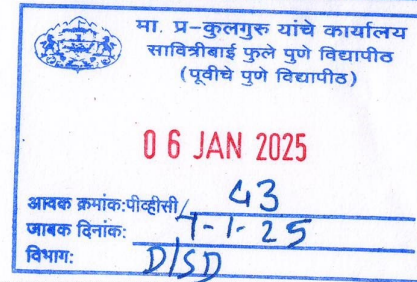 मा. प्र-कुलगुरु यांचे कार्यालय
सावित्रीबाई फुले पुणे विद्यापीठ
(पूर्वीचे पुणे विद्यापीठ)
06 JAN 2025
आवक क्रमांक:पीव्हीसी/ 43
जाबक दिनांक: 7-1-25
विभाग: DISD